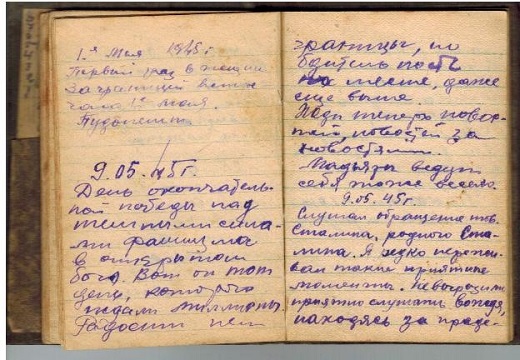 1.я Мая 1945г.
Первый раз в жизни
за границей встре
чаю 1е мая.
Будапешт
9.05.45г.
День окончатель-
ной победы над
темными сила-
ми фашизма
в открытом
бою. Вот он тот
день, которого
ждали миллионы.
Радости нет
границы, но
бдительность
на месте, даже
еще выше.
Жди теперь новос-
тей, новостей за
новостями.
Мадьяры ведут
себя тоже весело.
9.05.45г.
Слушал обращение тов.
Сталина, родного Ста-
лина. Я редко пережи-
вал такие приятные
моменты. Невыразимо
приятно слушать вождя,
находясь за преде-